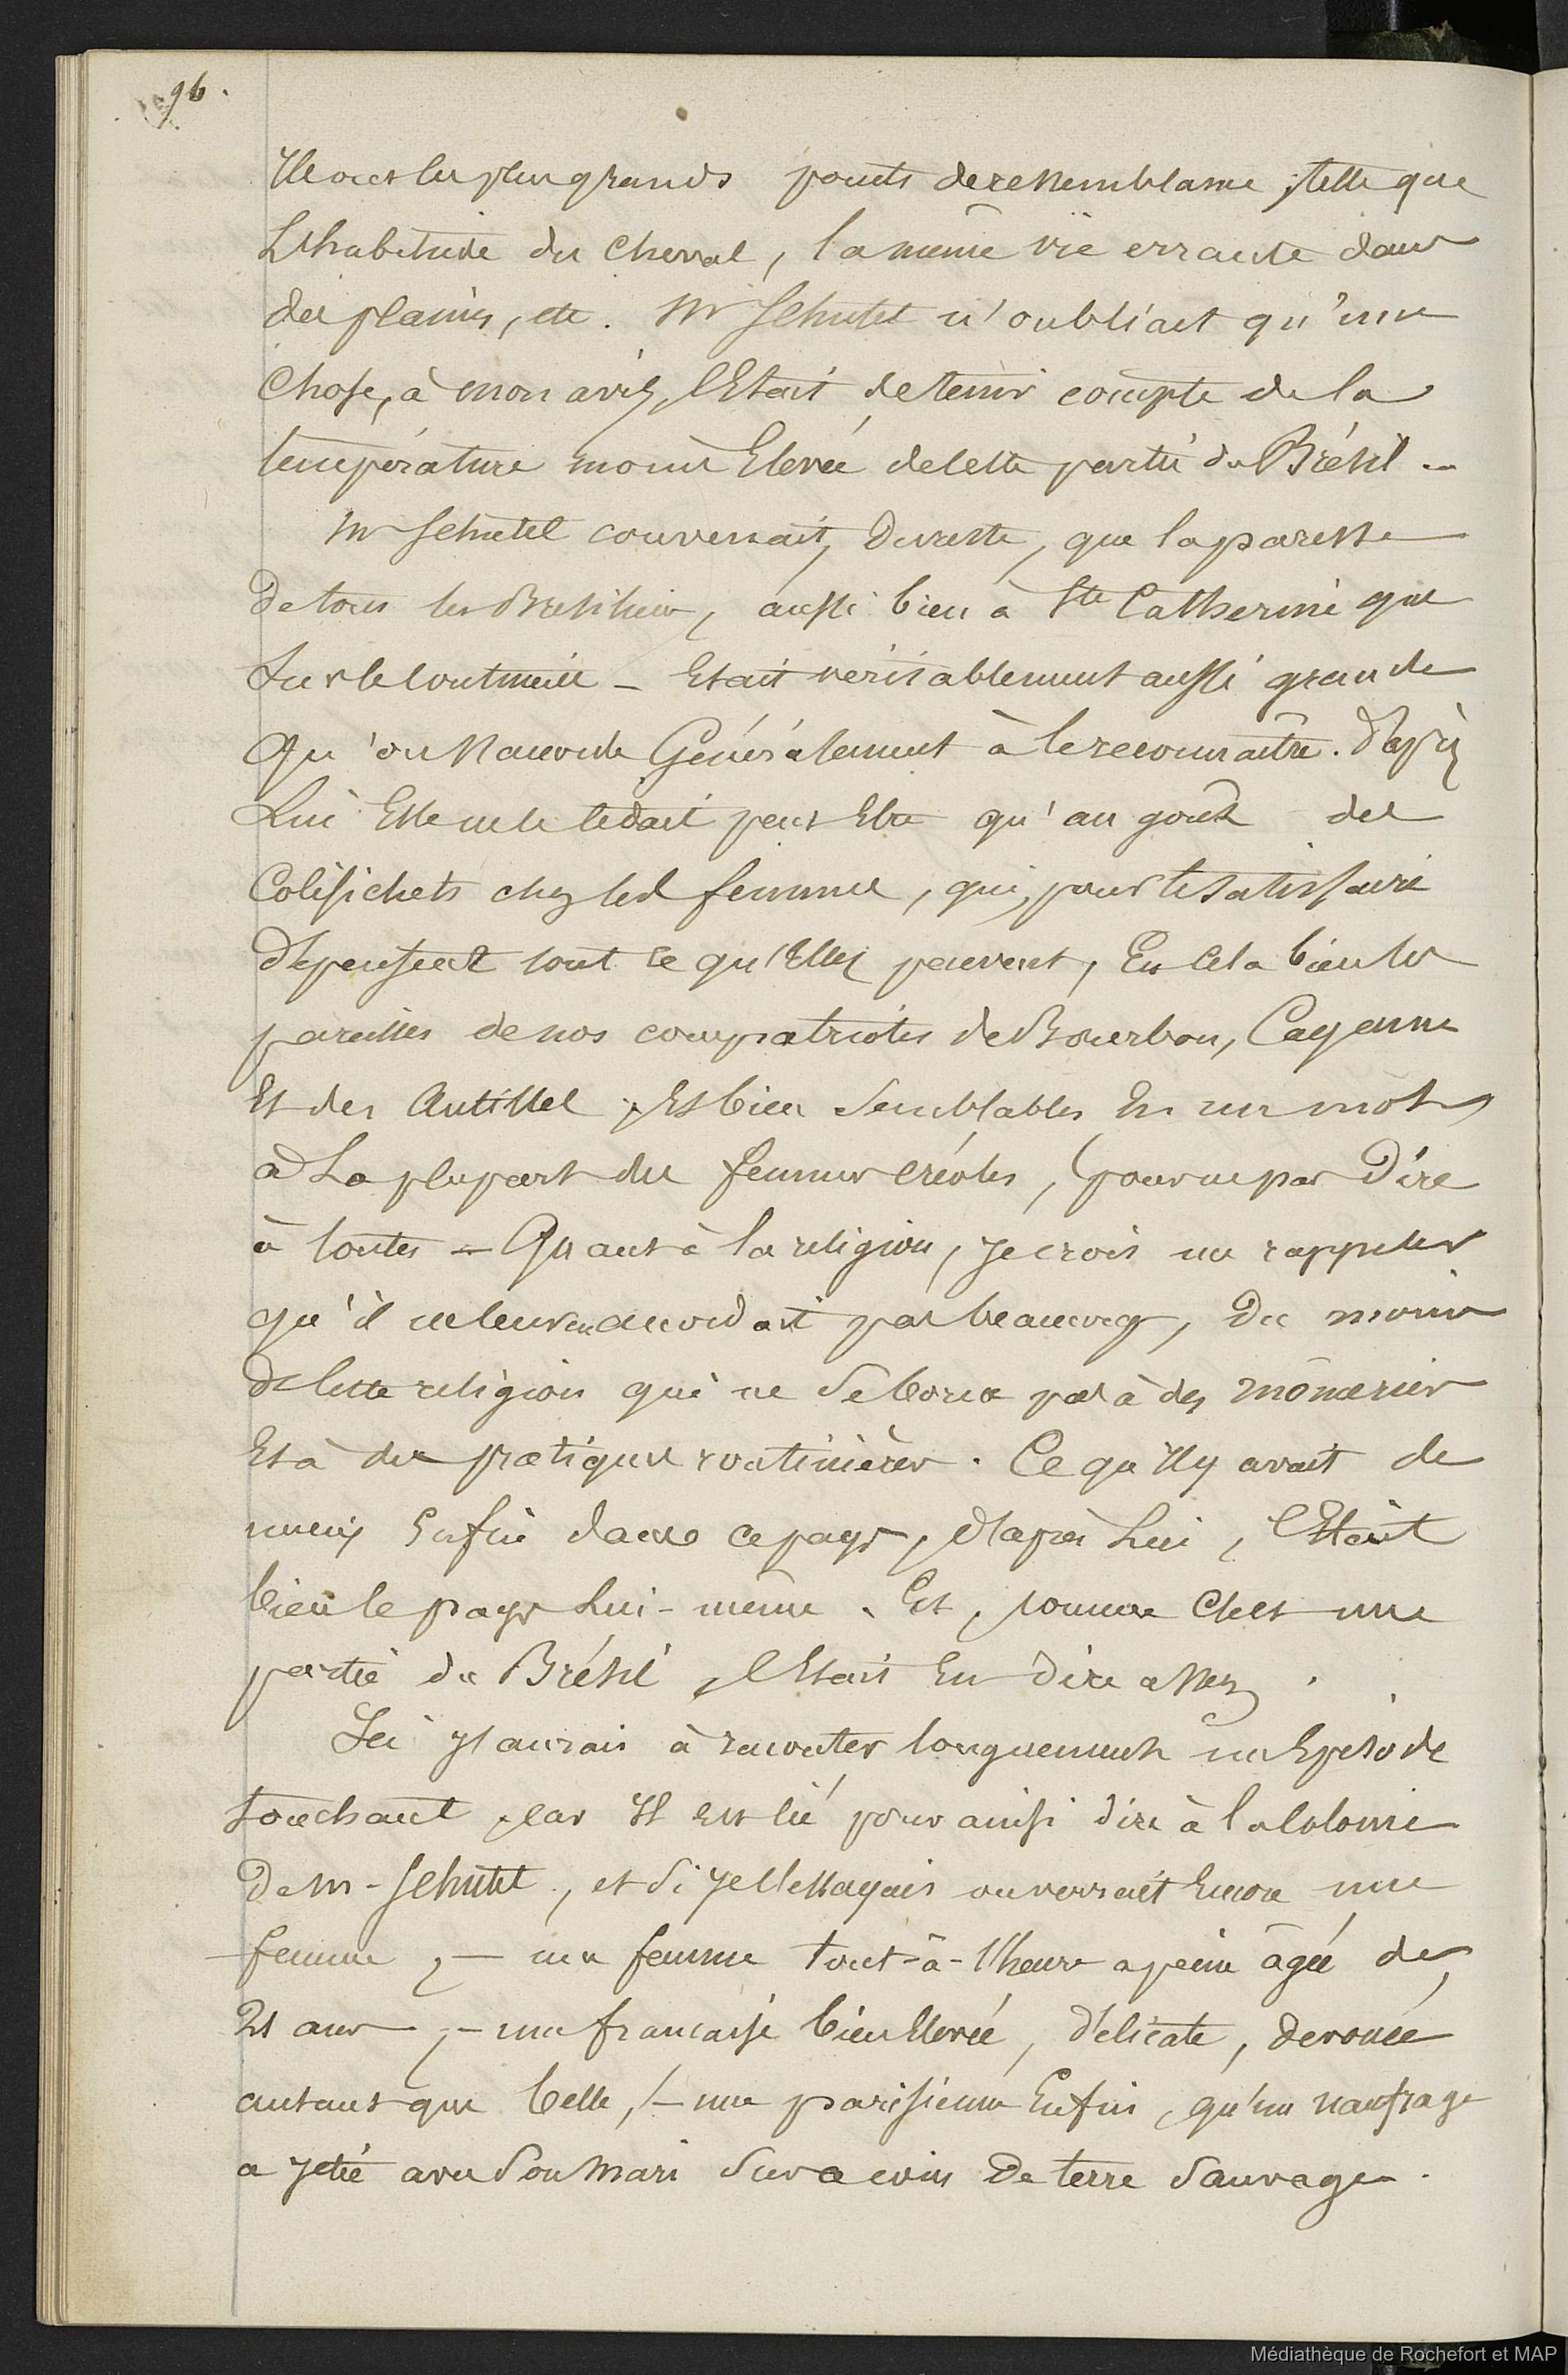 96.
Ils ont les plus grands points de ressemblance, telle que
L'habitude du cheval, la même vie errante dans
des plaines, etc. Mr Schutel n'oubliait qu'une
Chose, à mon avis, c'Etait de tenir compte de la
température moins Elevée de cette partie du Brésil.
Mr Schutel convenait, Dureste, que la paresse
De tous les Brésiliens, aussi bien à Ste Catherine que
Sur le Continent - Etait véritablement aussi grande
Qu'on s'accorde Généralement à le reconnaître. D'après
Lui Elle ne le cédait peut Etre qu'au goût des
Colifichets chez les femmes, qui, pour le satisfaire
Dépensent tout ce qu'Elles peuvent, En cela bien les
pareilles de nos compatriotes de Bourbon, Cayenne
Et des Antilles, Et bien Semblables En un mot,
à La plupart des femmes créoles, (pour ne pas Dire
à toutes - Quant à la religion, Je crois me rappeler
qu'il ne leur en accordait pas beaucoup, Du moins
De cette religion qui ne Se borne pas à des mômeries
Et à des pratiques routinières. Ce qu'Il y avait de
mieux Enfin dans ce pays, d'après Lui, c'Etait
bien le pays Lui-même. Et, comme C'est une
partie du Brésil, c'Etait En dire assez.
Ici J'aurais à raconter longuement un Episode
touchant, car Il est lié pour ainsi dire à la Colonie
De Mr Schutel, et Si Je l'Essayais on verrait Encore une
femme, - une femme tout-à-l'heure a peine âgée de,
21 ans, - une française bien Elevée, Délicate, Devouée
autant que belle, - une parisienne Enfin, qu'un naufrage
a Jeté avec Son Mari Sur ce coin De terre Sauvage.
Médiathèque de Rochefort et MAP